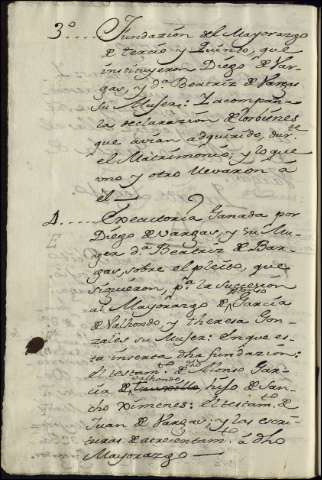 3º.... Fundazion del Mayorazgo
de tercio y Quinto, que
instituyeron Diego de Var-
gas, y dª Beatriz de Vargas
su Mujer: Zacompaña
la declarazion de los bienes
que avian adquirido, durte
el Matrimonio, y lo que
uno y otro llevaron a
el —
4..... Executoria Ganada por
Diego de Vargas, y su Mu-
ger dª Beatriz de Bar-
gas, sobre el pleito, que
siguieron, pª la succesion
al Mayorazgo de Garcia
de Valhondo, y theresa Gon-
zales su Mujer: En que es-
ta inserta dha fundazion:
el testamto de Alonso Gar-
cia de Valhondo hijo de San-
cho Ximenes: el testamto de
Juan de Vargas; y las escri-
turas de acrecentamto a dho
Mayorazgo —